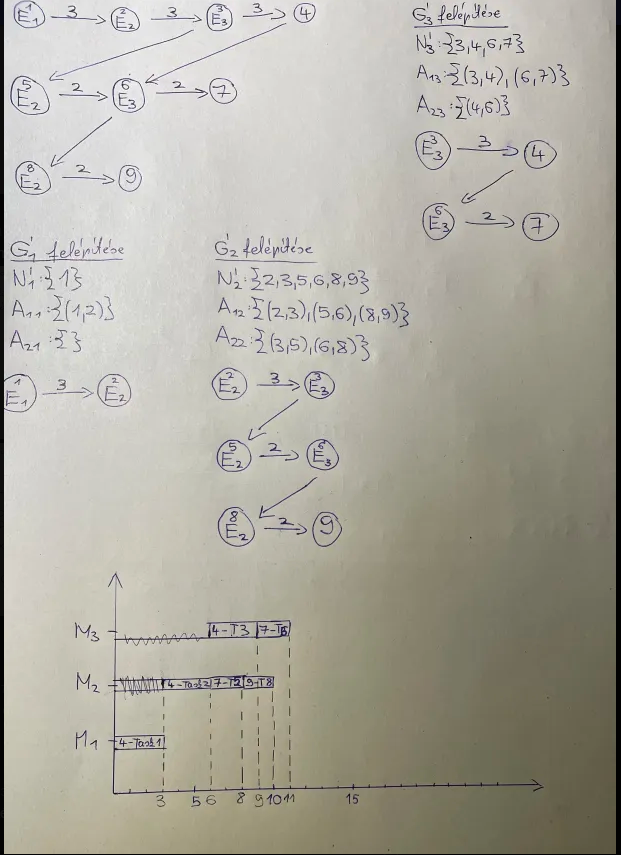 1 E₁ 3 2 E₂ 3 3 E₃ 3 4
5 E₂ 2 6 E₃ 2 7
8 E₂ 2 9
G₃' felépítése
N₃':{3,4,6,7}
A₁₃:{(3,4),(6,7)}
A₂₃:{(4,6)}
3 E₃ 3 4
6 E₃ 2 7
G₁' felépítése
N₁':{1}
A₁₁:{(1,2)}
A₂₁:{}
1 E₁ 3 2 E₂
G₂' felépítése
N₂':{2,3,5,6,8,9}
A₁₂:{(2,3),(5,6),(8,9)}
A₂₂:{(3,5),(6,8)}
2 E₂ 3 3 E₃
5 E₂ 2 6 E₃
8 E₂ 2 9
M₃ 4-T3 7-T6
M₂ 4-Task2 7-T5 9-T8
M₁ 4-Task1
3 5 6 8 9 10 11 15